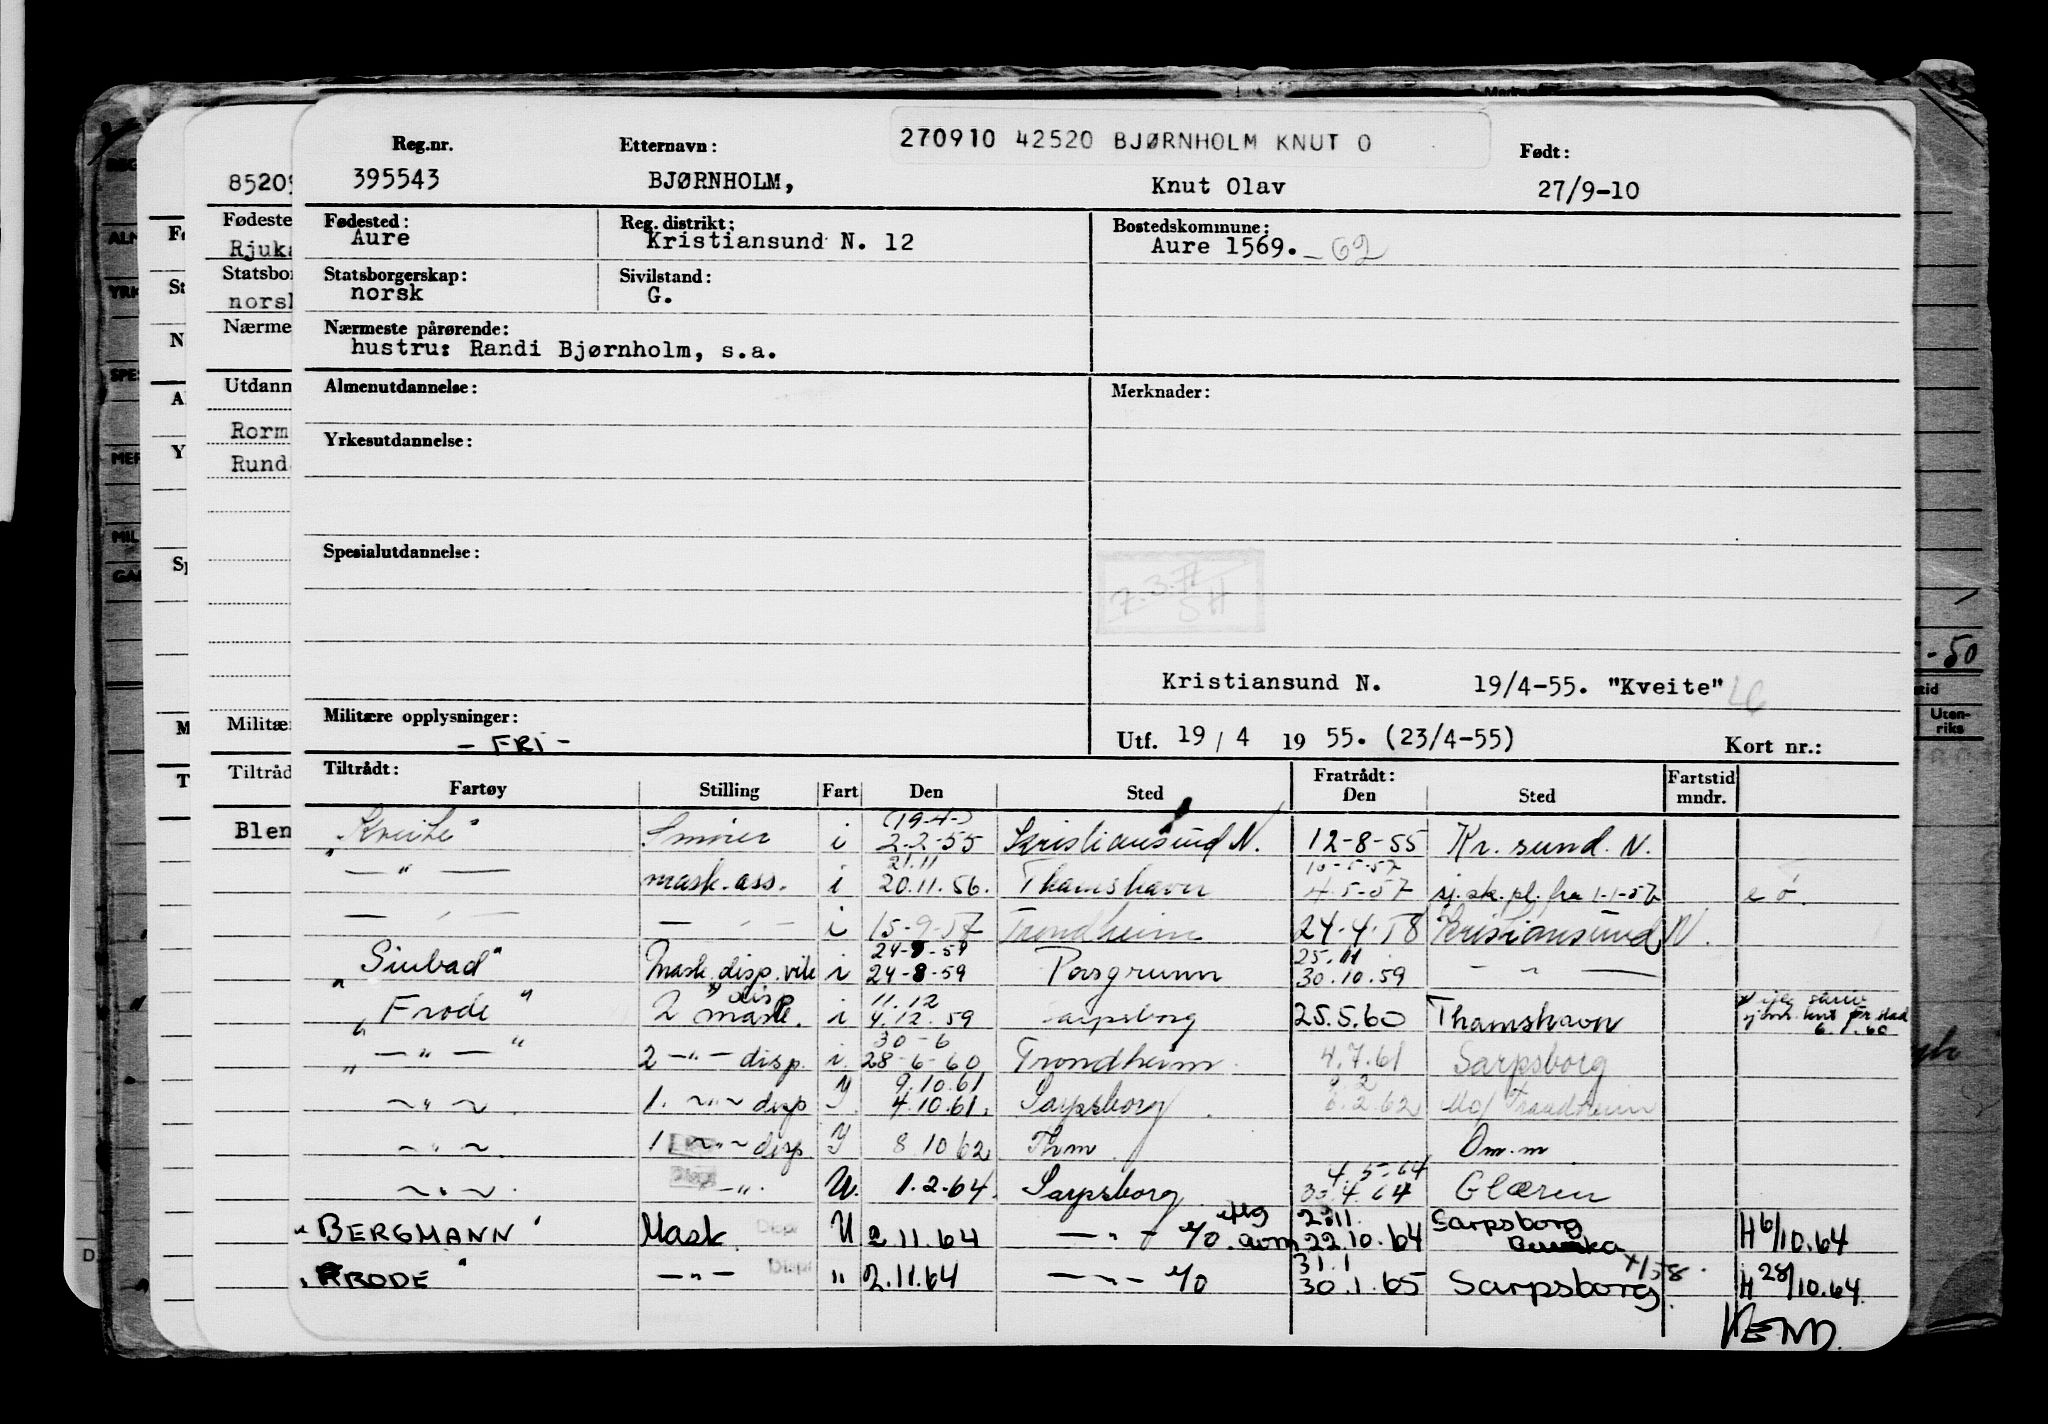 270910 42520 BJØRNHOLM KNUT O
Reg.nr. Etternavn: Født:
395543 BJØRNHOLM, Knut Olav 27/9-10
Fødested: Reg. distrikt: Bostedskommune:
Aure Kristiansund N. 12 Aure 1569. - 62
Statsborgerskap: Sivilstand:
norsk G.
Nærmeste pårørende:
hustru: Randi Bjørnholm, s.a.
Almenutdannelse: Merknader:
Yrkesutdannelse:
Spesialutdannelse:
7.3.
SH
Kristiansund N. 19/4-55. "Kveite"
Militære opplysninger:
- FRI -
Utf. 19 / 4 19 55. (23/4-55) Kort nr.:
Tiltrådt: Fratrådt: Fartstid
Fartøy Stilling Fart Den Sted Den Sted mndr.
(19-4-)
"Kveite" Smører i 2-2-55 Kristiansund N. 12-8-55 Kr. sund. N.
21.11
— " — mask. ass. i 20.11.56. Thamshavn 4-5-57 sj. sk. pl. fra 1-1-57
— " — — " — i 15-9-57 Trondheim 24-4-58 Kristiansund N.
24-8-59 25.11
"Sinbad" Mask. disp. vik i 24-8-59 Porsgrunn 30.10.59 — " —
disp 11.12
"Frode" 2 mask. i 4.12.59 Sarpsborg 25.5.60 Thamshavn
6.1.60
30-6
" — " — " 2 — " — disp. i. 28-6-60 Trondheim. 4.7.61 Sarpsborg
9.10.61 9.2
~ " ~ 1. ~ " ~ disp Y. 4.10.61. Sarpsborg 6.2.62 Mo/Trondheim
~ " ~ 1 ~ " ~ disp Y 8.10.62 Thm Om.m
4.5.64
~ " ~ — " — U. 1.2.64. Sarpsborg 30.4.64 Glæren
2.11.
"BERGMANN" Mask. Disp U 2.11.64 — " — 22.10.64 Sarpsborg H 6/10.64
31.1
"FRODE" — " — Disp " 2.11.64 — " — 30.1.65 Sarpsborg. H 28/10.64.
VEND.
85209
Fødeste
Rjuka
Statsbor
norsk
Nærme
Utdann
Rorm
Rund
Militær
Tiltråd
Blen
Fø
St
N
A
Y
Sp
M
T
REG
ALM
YRK
SPES
MER
MIL
GA
D
-50
Uten-
riks